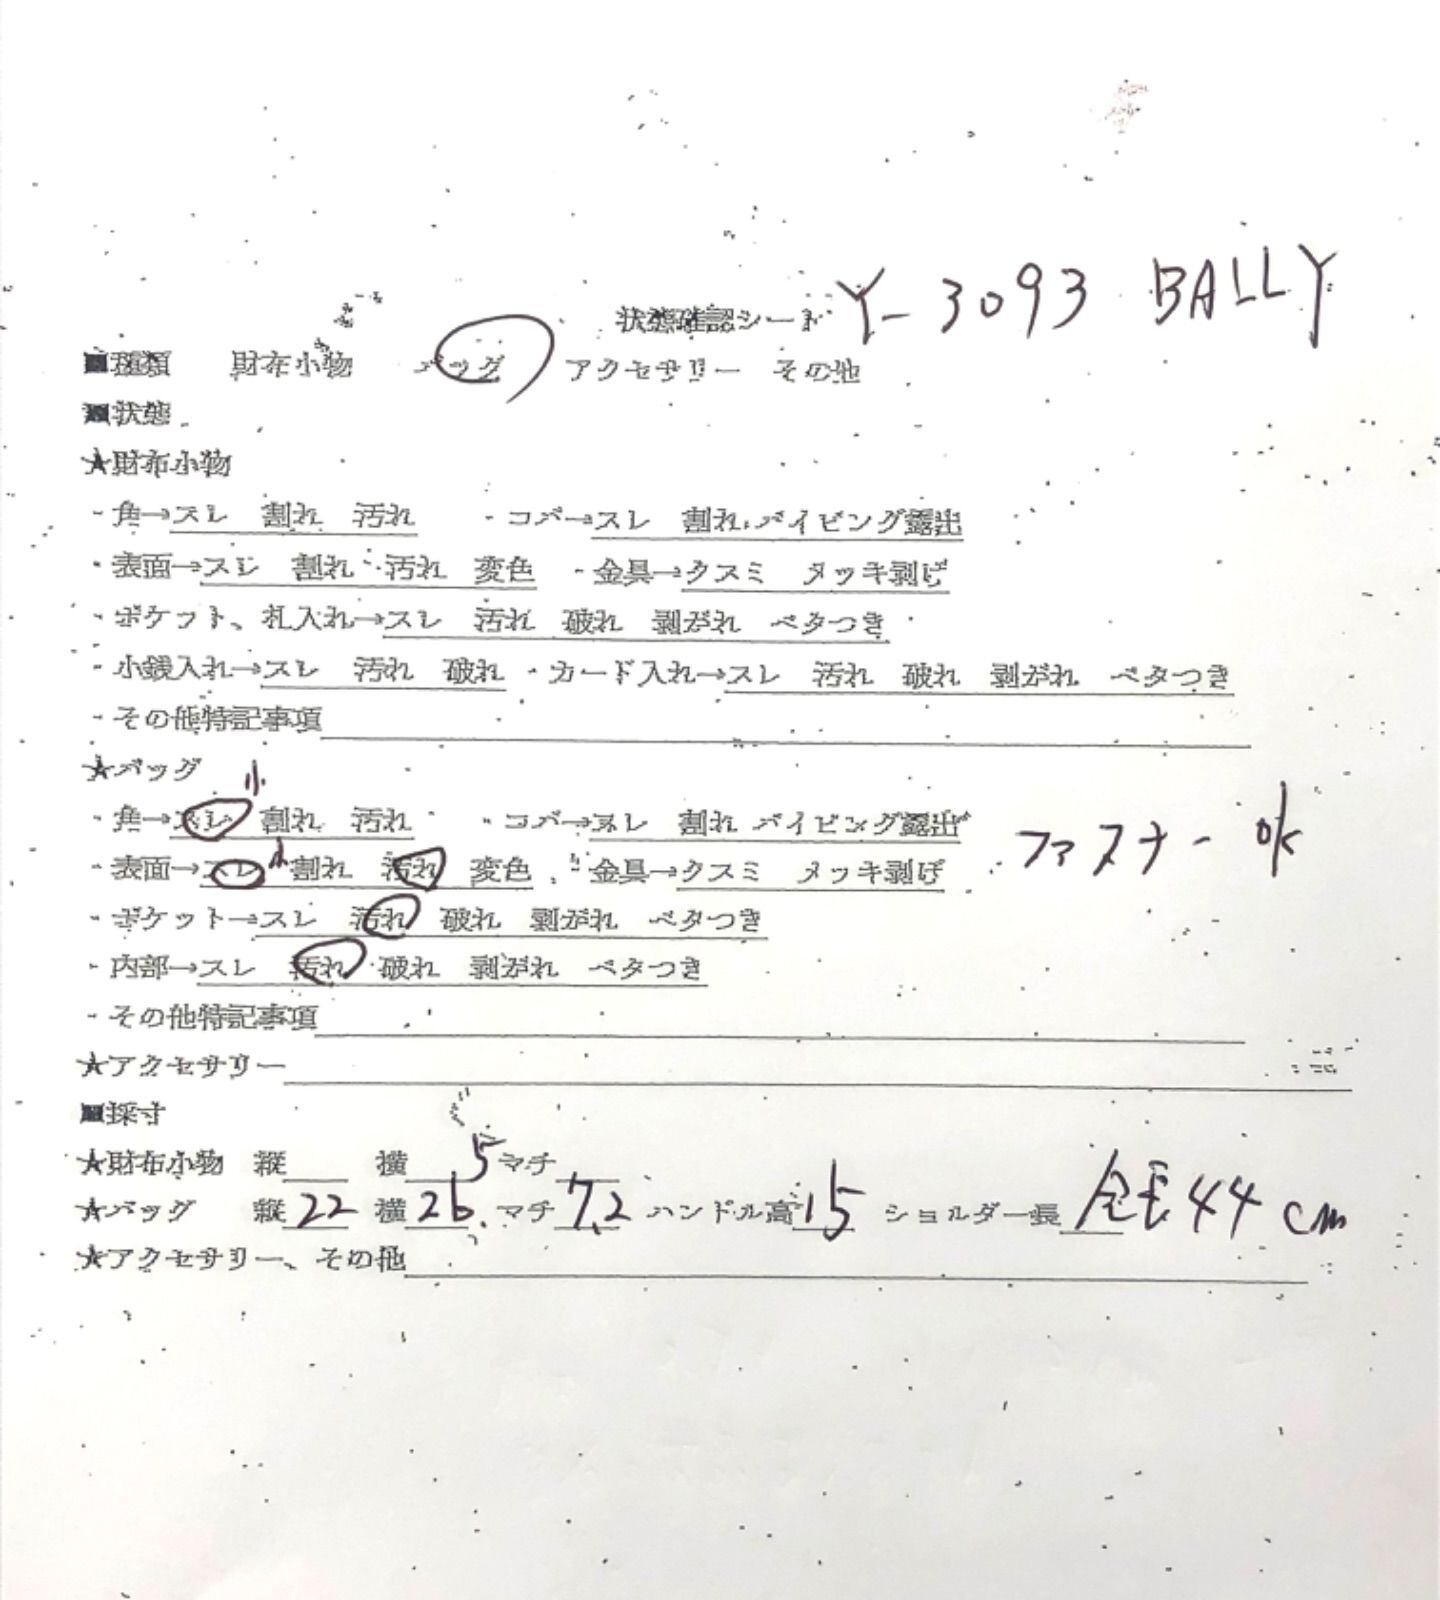 状態確認シート Y-3093 BALLY
■種類 財布小物 バッグ アクセサリー その他
■状態
★財布小物
・角→スレ 割れ 汚れ ・コバ→スレ 割れ パイピング露出
・表面→スレ 割れ 汚れ 変色 ・金具→クスミ メッキ剥げ
・ポケット、札入れ→スレ 汚れ 破れ 剥がれ ベタつき
・小銭入れ→スレ 汚れ 破れ ・カード入れ→スレ 汚れ 破れ 剥がれ ベタつき
・その他特記事項
★バッグ
小
・角→スレ 割れ 汚れ ・コバ→スレ 割れ パイピング露出 ファスナーOK
・表面→スレ 小 割れ 汚れ 変色 ・金具→クスミ メッキ剥げ
・ポケット→スレ 汚れ 破れ 剥がれ ベタつき
・内部→スレ 汚れ 破れ 剥がれ ベタつき
・その他特記事項
★アクセサリー
■採寸
★財布小物 縦 横 5 マチ
★バッグ 縦22 横26. マチ7.2 ハンドル高15 ショルダー長 全長44cm
★アクセサリー、その他